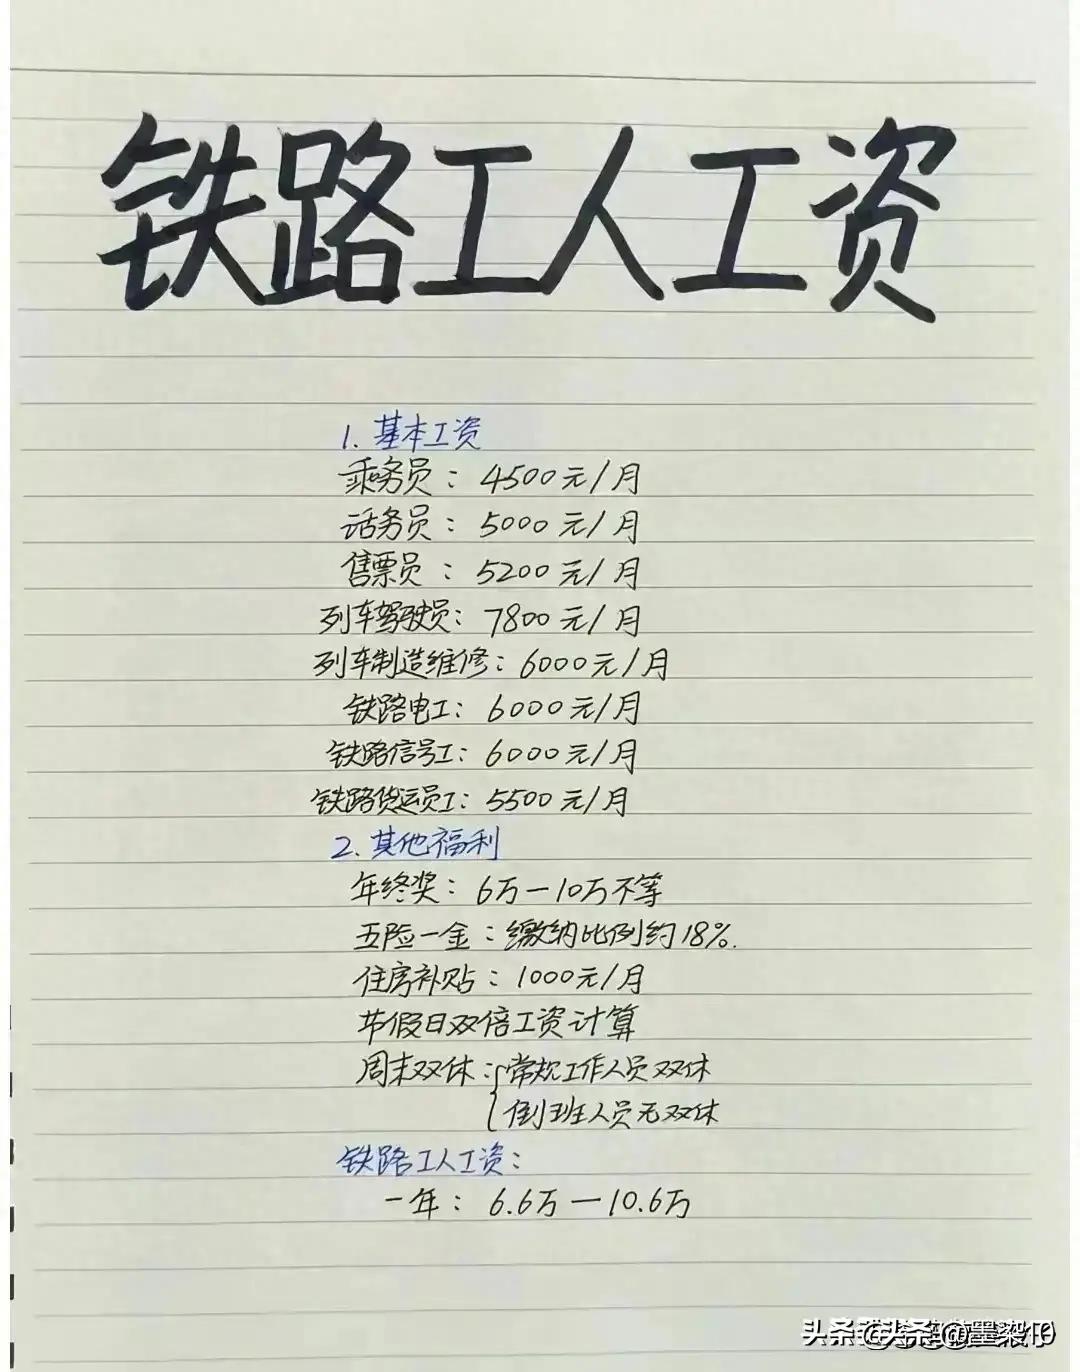 铁路工人工资
1. 基本工资
乘务员：4500元/月
话务员：5000元/月
售票员：5200元/月
列车驾驶员：7800元/月
列车制造维修：6000元/月
铁路电工：6000元/月
铁路信号工：6000元/月
铁路货运员工：5500元/月
2. 其他福利
年终奖：6万—10万不等
五险一金：缴纳比例约18%.
住房补贴：1000元/月
节假日双倍工资计算
周末双休：常规工作人员双休
倒班人员无双休
铁路工人工资：
一年：6.6万—10.6万
头条